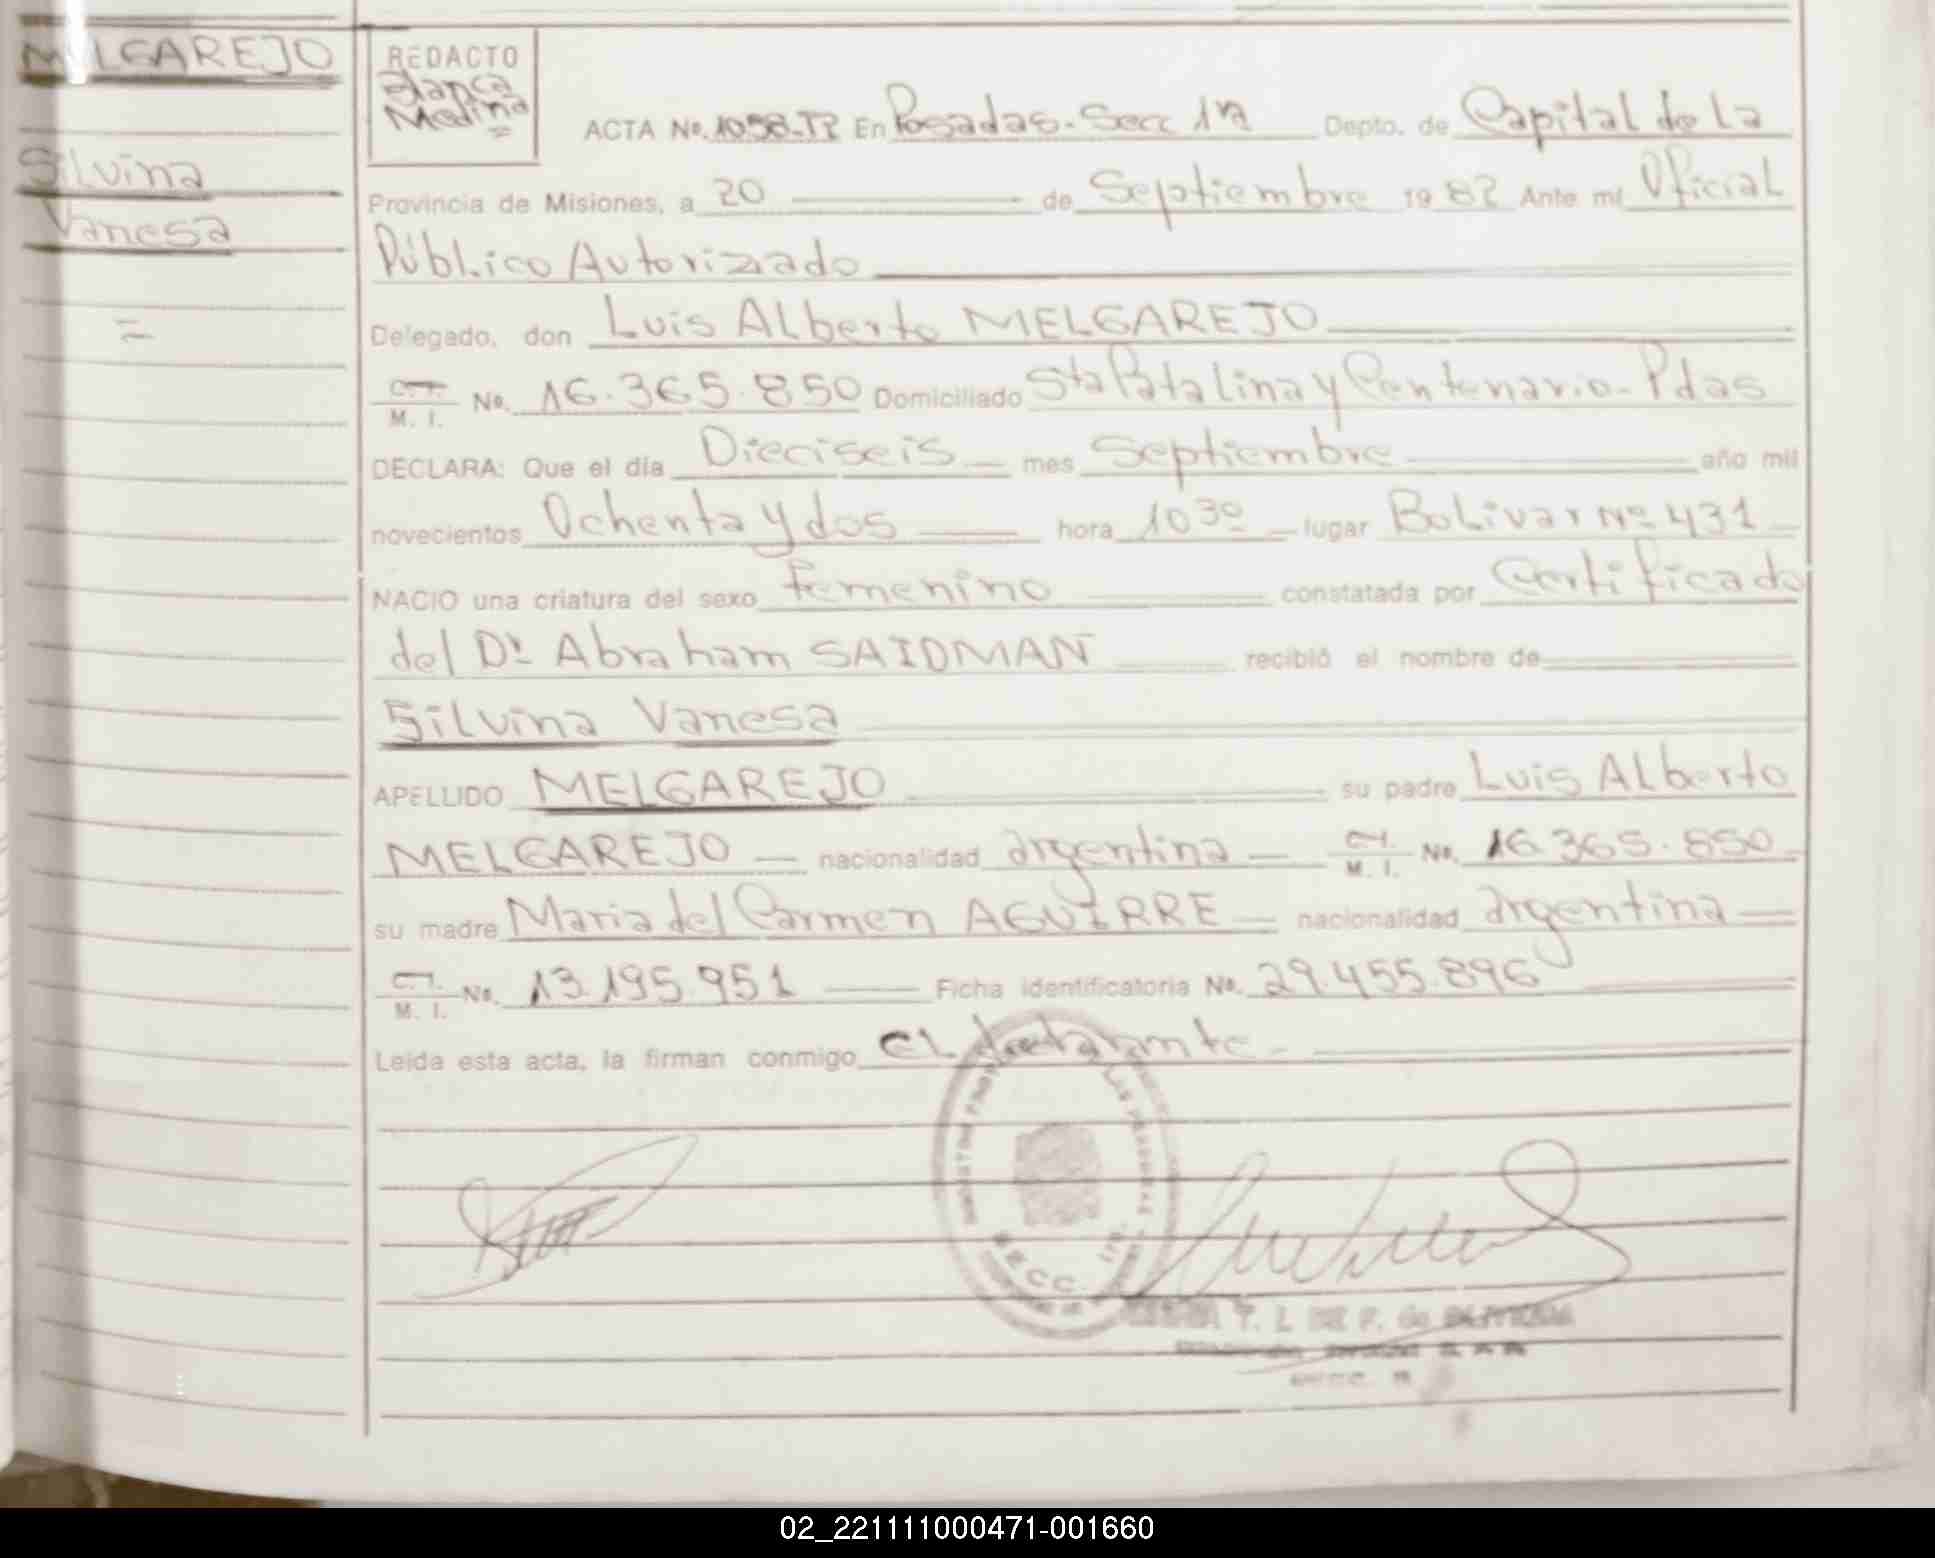 MELGAREJO
Silvina
Vanesa
=
REDACTO
Blanca
Medina
=
ACTA No. 1058-T2 En Posadas-Secc 1ra Depto. de Capital de La
Provincia de Misiones, a 20 de Septiembre 1982 Ante mi Oficial
Público Autorizado
Delegado, don Luis Alberto MELGAREJO
C. I.
M. I.
No. 16.365.850 Domiciliado Sta Catalina y Centenario-Pdas
DECLARA: Que el día Dieciseis mes Septiembre año mil
novecientos Ochenta y dos hora 10 30 lugar Bolivar Nº 431
NACIO una criatura del sexo femenino constatada por Certificado
del Dr Abraham SAIDMAN recibió el nombre de
Silvina Vanesa
APELLIDO MELGAREJO su padre Luis Alberto
MELGAREJO nacionalidad argentina C. I. M. I. No. 16.365.850
su madre Maria del Carmen AGUIRRE nacionalidad argentina
C. I.
M. I.
No. 13.195.951 Ficha identificatoria No. 29.455.896
Leída esta acta, la firman conmigo el declarante-
SECC. 1ra.
02_221111000471-001660